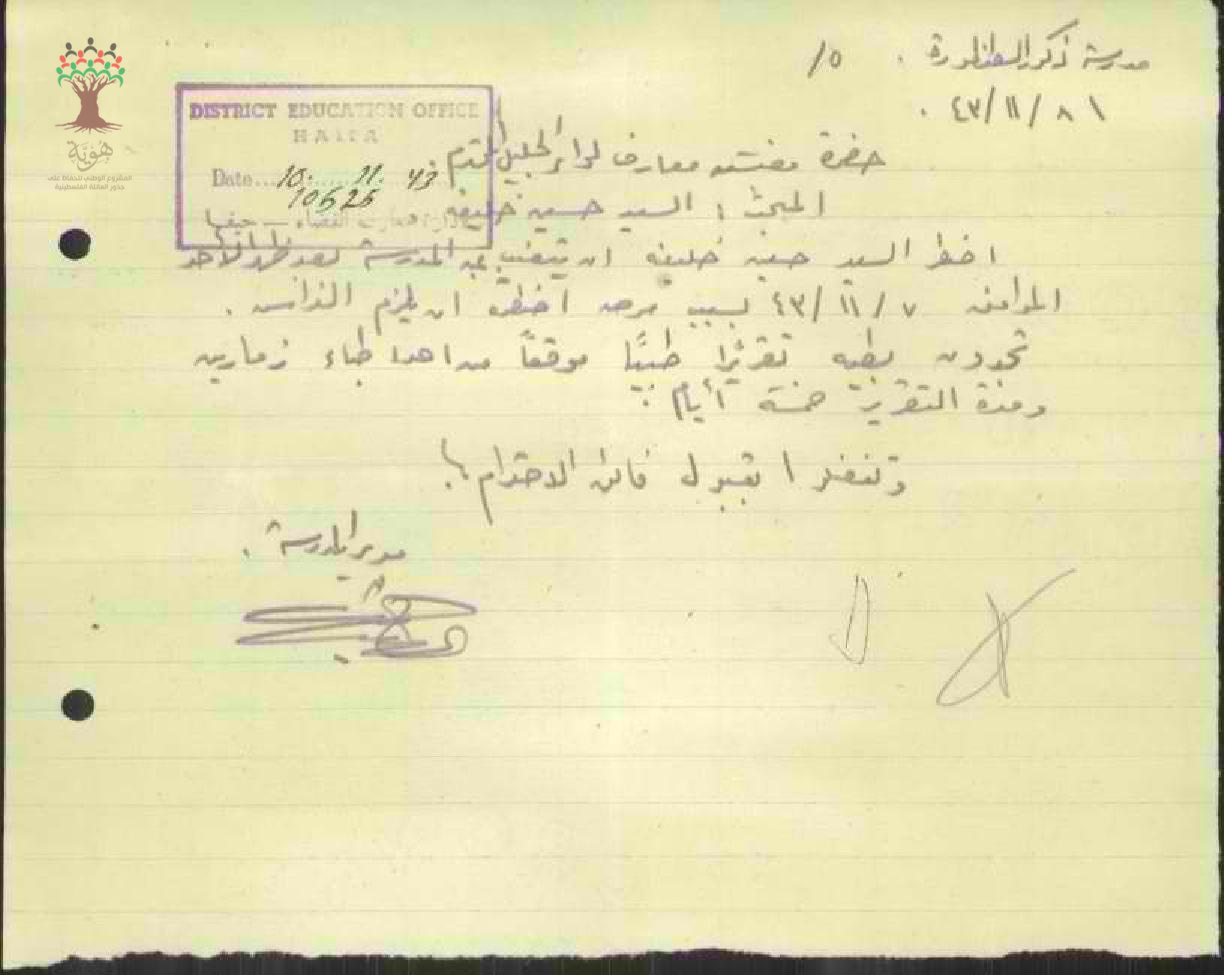 مدرسة ذكور الطنطورة . ١٥/
٨/١١/٤٣ .
حضرة مفتش معارف لواء الجليل المحترم
المبحث : السيد حسين خليفه
اضطر السيد حسين خليفه ان يتغيب عن المدرسة بعد ظهر الاحد
الموافق ٧/١١/٤٣ بسبب مرض اضطره ان يلزم الفراش .
تجدون بطيه تقريرًا طبيًا موقعاً من احد اطباء زمارين
ومدة التقرير خمسة أيام .
وتفضلوا بقبول فائق الاحترام
مدير المدرسة .
DISTRICT EDUCATION OFFICE
HAIFA
Date... 10. 11. 43
10525
ادارة معارف القضاء — حيفا
هُويّة
المشروع الوطني للحفاظ على
جذور العائلة الفلسطينية